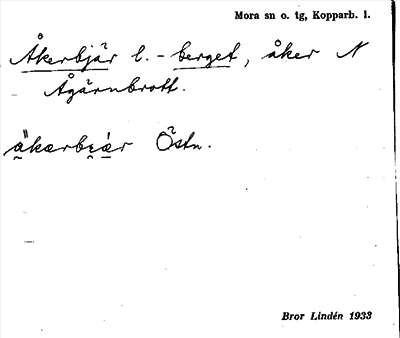 Mora sn o. tg, Kopparb. l.
Åkerbjär l. - berget, åker N
Ågärnbrott.
Östn.
Bror Lindén 1933